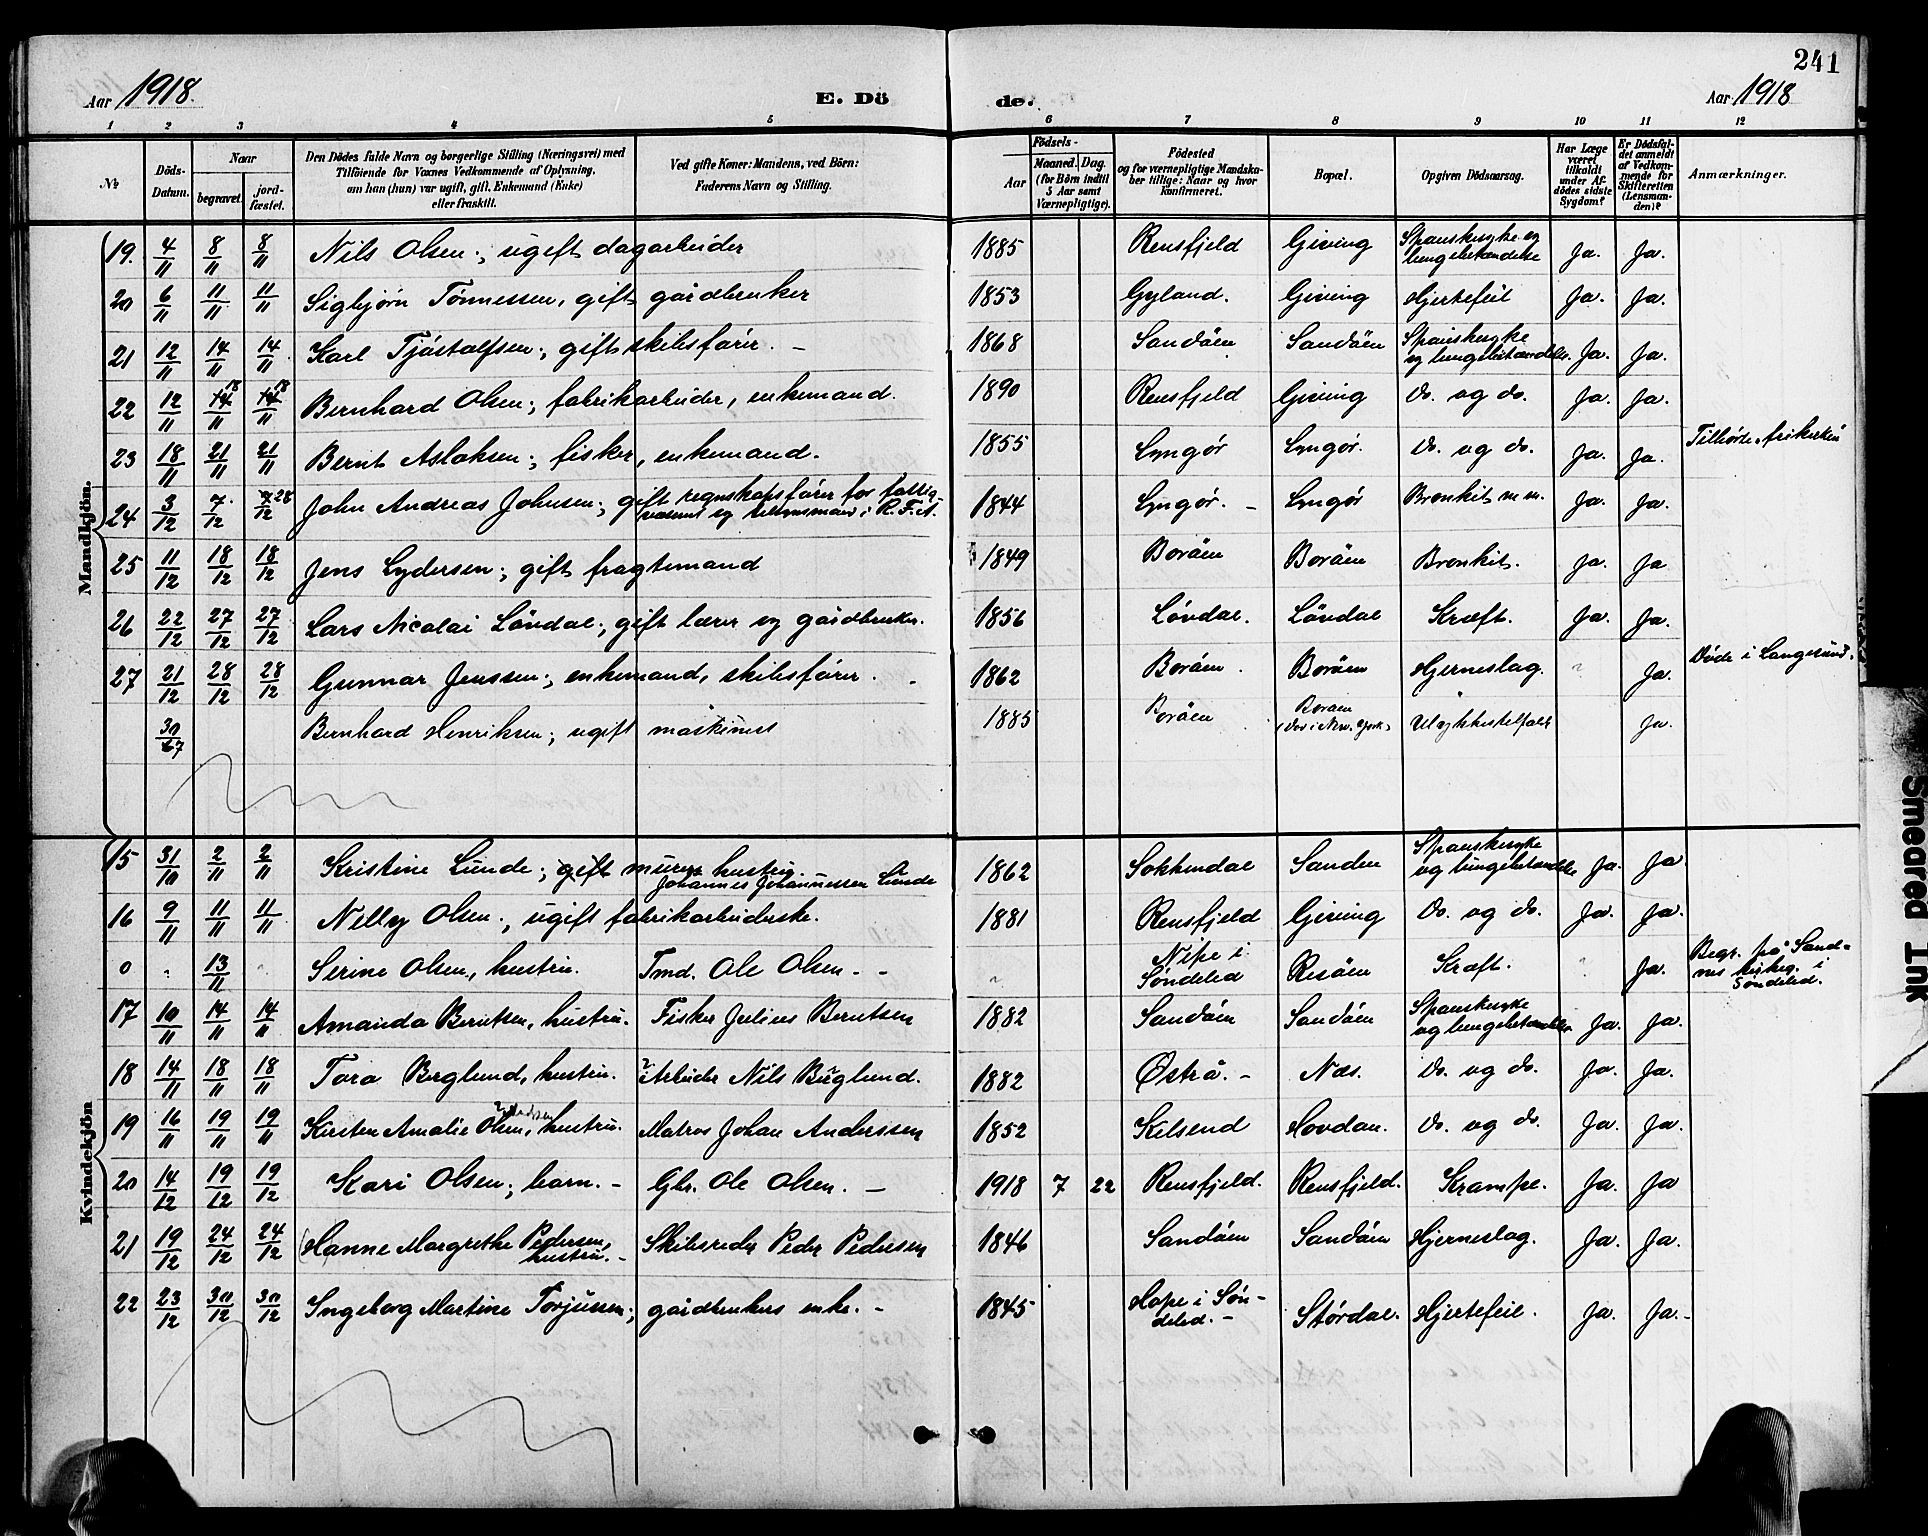 241
Aar 1918. E. Dö de. Aar 1918
1 2 3 4 5 6 7 8 9 10 11 12
№ Döds-Datum. Naar begravet. jordfæstet. Den Dödes fulde Navn og borgerlige Stilling (Næringsvei) med Tilföiende for Voxnes Vedkommende af Oplysning, om han (hun) var ugift, gift, Enkemand (Enke) eller fraskilt. Ved gifte Koner: Mandens, ved Börn: Faderens Navn og Stilling. Födsels- Aar Maaned. Dag. (for Börn indtil 5 Aar samt Værnepligtige). Födested og for værnepligtige Mandskaber tillige: Naar og hvor konfirmeret. Bopæl. Opgiven Dödsaarsag. Har Læge været tilkaldt under Afdödes sidste Sygdom? Er Dödsfaldet anmeldt af Vedkommende for Skifteretten (Lensmanden)? Anmærkninger.
Mandkjön.
19. 4/11 8/11 8/11 Nils Olsen; ugift dagarbeider 1885 Rensfjeld Giving Spanskesyke og lungebetændelse Ja. Ja.
20 6/11 11/11 11/11 Sigbjørn Tønnessen, gift gårdbruker 1853 Gyland. Giving Hjertefeil Ja. Ja.
21 12/11 14/11 14/11 Karl Tjöstolfsen; gift skibsfører. – 1868 Sandöen Sandöen Spanskesyke og lungebetændelse. Ja. Ja.
22 12/11 14/11 18 14/11 18 Bernhard Olsen; fabrikarbeider, enkemand. 1890 Rensfjeld Giving Do. og do. Ja. Ja.
23 18/11 21/11 21/11 Bernt Aslaksen; fisker, enkemand. 1855 Lyngör Lyngör. Do. og do. Ja. Ja. Tilhørte frikirken
24 3/12 7/12 7/12 28 John Andreas Johnsen; gift regnskapsfører for fattigvæsenet og tilsynsmand i R.F.A. 1844 Lyngör. – Lyngör Bronkit m m. Ja. Ja.
25 11/12 18/12 18/12 Jens Lydersen; gift fragtemand 1849 Boröen Boröen Bronkit. Ja. Ja
26 22/12 27/12 27/12 Lars Nicolai Lövdal; gift lærer og gårdbruker. 1856 Lövdal. Lövdal Kræft. Ja. Ja.
27 21/12 28/12 28/12 Gunnar Jenssen; enkemand, skibsfører. – 1862 Boröen. Boröen Hjerneslag. " Ja. Døde i Langesund.
30/67 Bernhard Henriksen; ugift maskinist 1885 Boröen Boröen (Død i New. York) Ulykkestilfælde Ja.
Kvindekjön
15 31/10 2/11 2/11 Kristine Lunde; gift murers hustru. Johannes Johannessen Lunde 1862 Sokkendal Sanden Spanskesyke og lungebetændelse Ja. Ja
16 9/11 11/11 11/11 Nelly Olsen; ugift fabrikarbeiderske. 1881 Rensfjeld Giving Do. og do. Ja. Ja.
0 " 13/11 " Serine Olsen, hustru. Tmd. Ole Olsen – – " Nipe i Søndeled Risöen Kræft. " Ja. Begr. på Sandnes kirkeg. i Søndeled.
17 10/11 14/11 14/11 Amanda Berntsen, hustru. Fisker Julius Berntsen 1882 Sandöen Sandöen Spanskesyke og lungebetændelse Ja. Ja.
18 14/11 18/11 18/11 Tora Berglund, hustru. Arbeider Nils Berglund. 1882 Østrå. – Næs. Do. og do. Ja. Ja.
19 16/11 19/11 19/11 Kirsten Amalie Olsen, hustru. Matros Johan Anderssen 1852 Kilsend Hovdan. Do. og do. Ja. Ja.
20 14/12 19/12 19/12 Kari Olsen; barn. – Gbr. Ole Olsen. – 1918 7 22 Rensfjeld. Rensfjeld. Krampe. Ja. Ja
21 19/12 24/12 24/12 Hanne Margrethe Pedersen, hustru. – Skibsreder Peder Pedersen 1846 Sandöen Sandöen Hjerneslag. Ja. Ja.
22 23/12 30/12 30/12 Ingeborg Martine Torjussen; gårdbrukers enke. – 1845 Hope i Søndeled. – Størdal. Hjertefeil. Ja. Ja. –
Smeared Ink